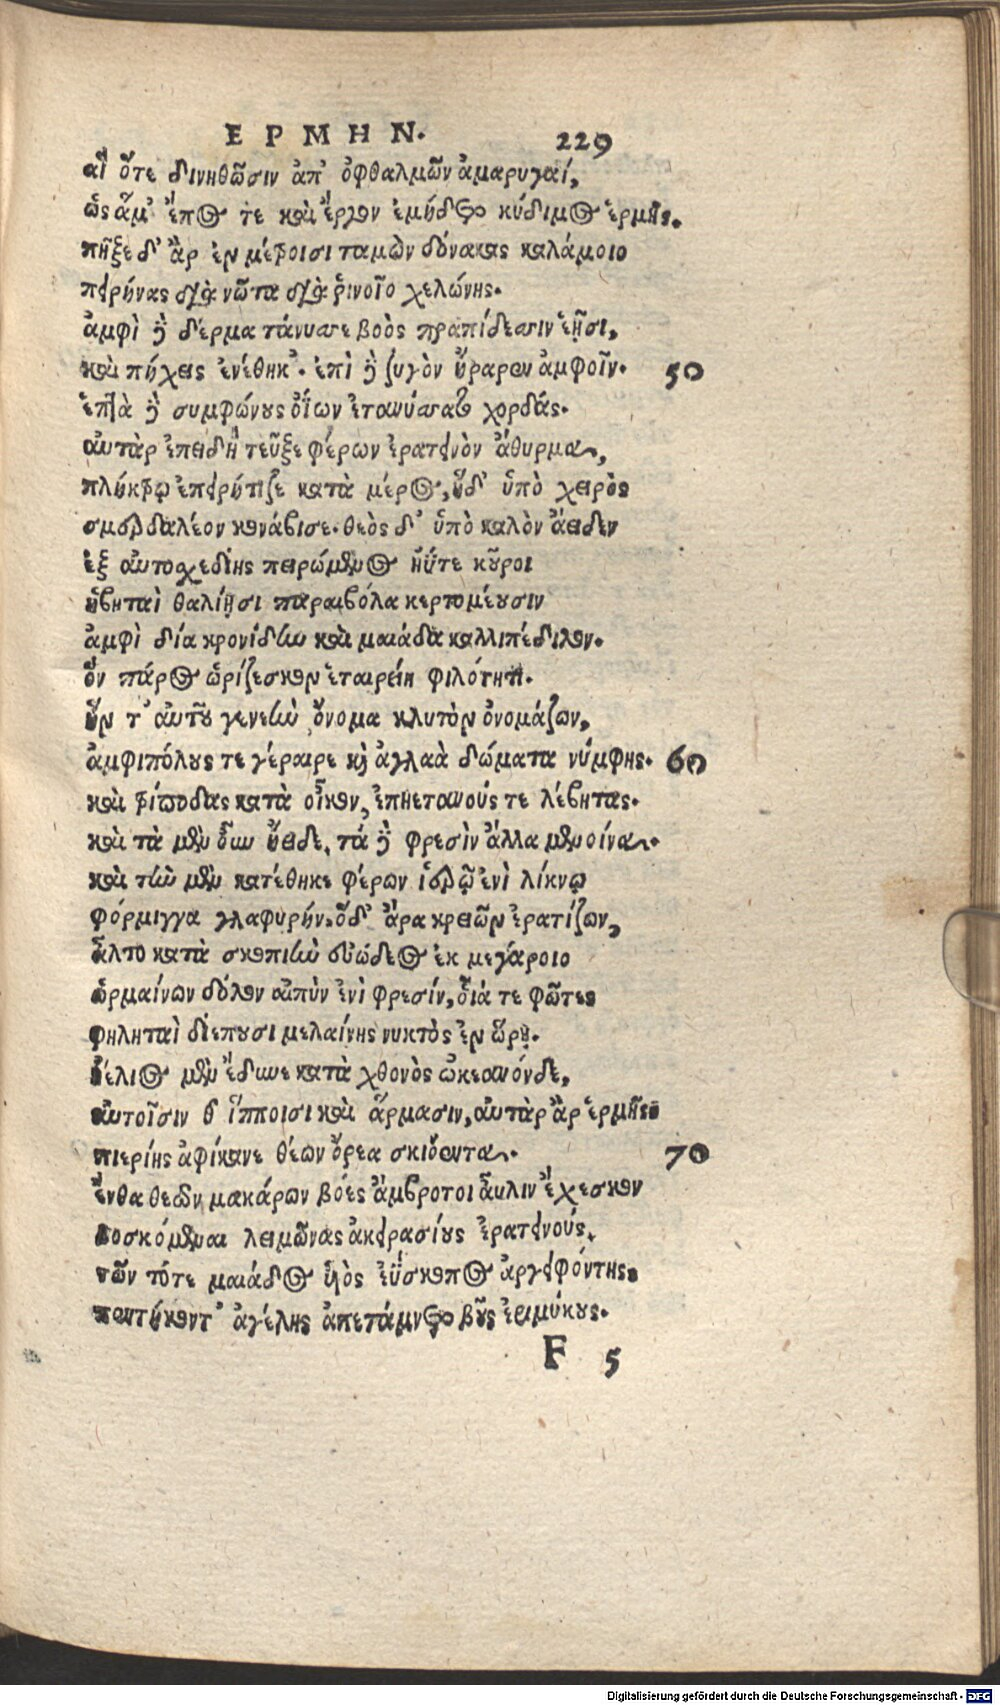 ΕΡΜΗΝ. 229
αἳ ὅτε δινηθῶσιν ἀπ' ὀφθαλμῶν ἀμαρυγαί,
ὣς ἅμ' ἔπος τε καὶ ἔργον ἐμήδετο κύδιμος ἑρμῆς.
πῆξε δ' ἂρ ἐν μέτροισι ταμὼν δόνακας καλάμοιο
πειρήνας διὰ νῶτα διὰ ῥινοῖο χελώνης.
ἀμφὶ δὲ δέρμα τάνυσσε βοὸς πραπίδεσσιν ἑῇσι,
καὶ πήχεις ἐνέθηκ'. ἐπὶ δὲ ζυγὸν ἤραρεν ἀμφοῖν. 50
ἑπτὰ δὲ συμφώνους ὀΐων ἐτανύσσατο χορδάς.
αὐτὰρ ἐπειδὴ τεῦξε φέρων ἐρατεινὸν ἄθυρμα,
πλήκτρῳ ἐπειρήτιζε κατὰ μέρος, ἡδ' ὑπὸ χειρὸς
σμερδαλέον κονάβισε. θεὸς δ' ὑπὸ καλὸν ἄειδεν
ἐξ αὐτοχεδίης πειρώμενος ἠΰτε κοῦροι
ἡβηταὶ θαλίῃσι παραιβόλα κερτομέουσιν
ἀμφὶ δία κρονίδην καὶ μαιάδα καλλιπέδιλον.
ὃν πάρος ὠρίζεσκον ἑταιρείη φιλότητι.
ἥν τ' αὐτοῦ γενεὴν ὄνομα κλυτὸν ὀνομάζων,
ἀμφιπόλους τε γέραιρε καὶ ἀγλαὰ δώματα νύμφης. 60
καὶ τρίποδας κατὰ οἶκον, ἐπηετανούς τε λέβητας.
καὶ τὰ μὲν οὖν ἤειδε, τὰ δὲ φρεσὶν ἄλλα μενοίνα.
καὶ τὴν μὲν κατέθηκε φέρων ἱερῷ ἐνὶ λίκνῳ
φόρμιγγα γλαφυρήν. ὅδ' ἄρα κρειῶν ἐρατίζων,
ἆλτο κατὰ σκοπιὴν εὐώδεος ἐκ μεγάροιο
ὡρμαίνων δόλον αἰπὺν ἐνὶ φρεσίν, οἷά τε φῶτες
φηληταὶ διέπουσι μελαίνης νυκτὸς ἐν ὥρῃ.
ἠέλιος μὲν ἔδυνε κατὰ χθονὸς ὠκεανόνδε,
αὐτοῖσίν θ' ἵπποισι καὶ ἅρμασιν, αὐτὰρ ἂρ ἑρμῆς
πιερίης ἀφίκανε θέων ὄρεα σκιόεντα. 70
ἔνθα θεῶν μακάρων βόες ἄμβροτοι αὖλιν ἔχεσκον
βοσκόμεναι λειμῶνας ἀκειρασίους ἐρατεινούς,
τῶν τότε μαιάδος υἱὸς ἐΰσκοπος ἀργειφόντης.
πεντήκοντ' ἀγέλης ἀπετάμνετο βοῦς ἐριμύκους.
F 5
Digitalisierung gefördert durch die Deutsche Forschungsgemeinschaft - DFG